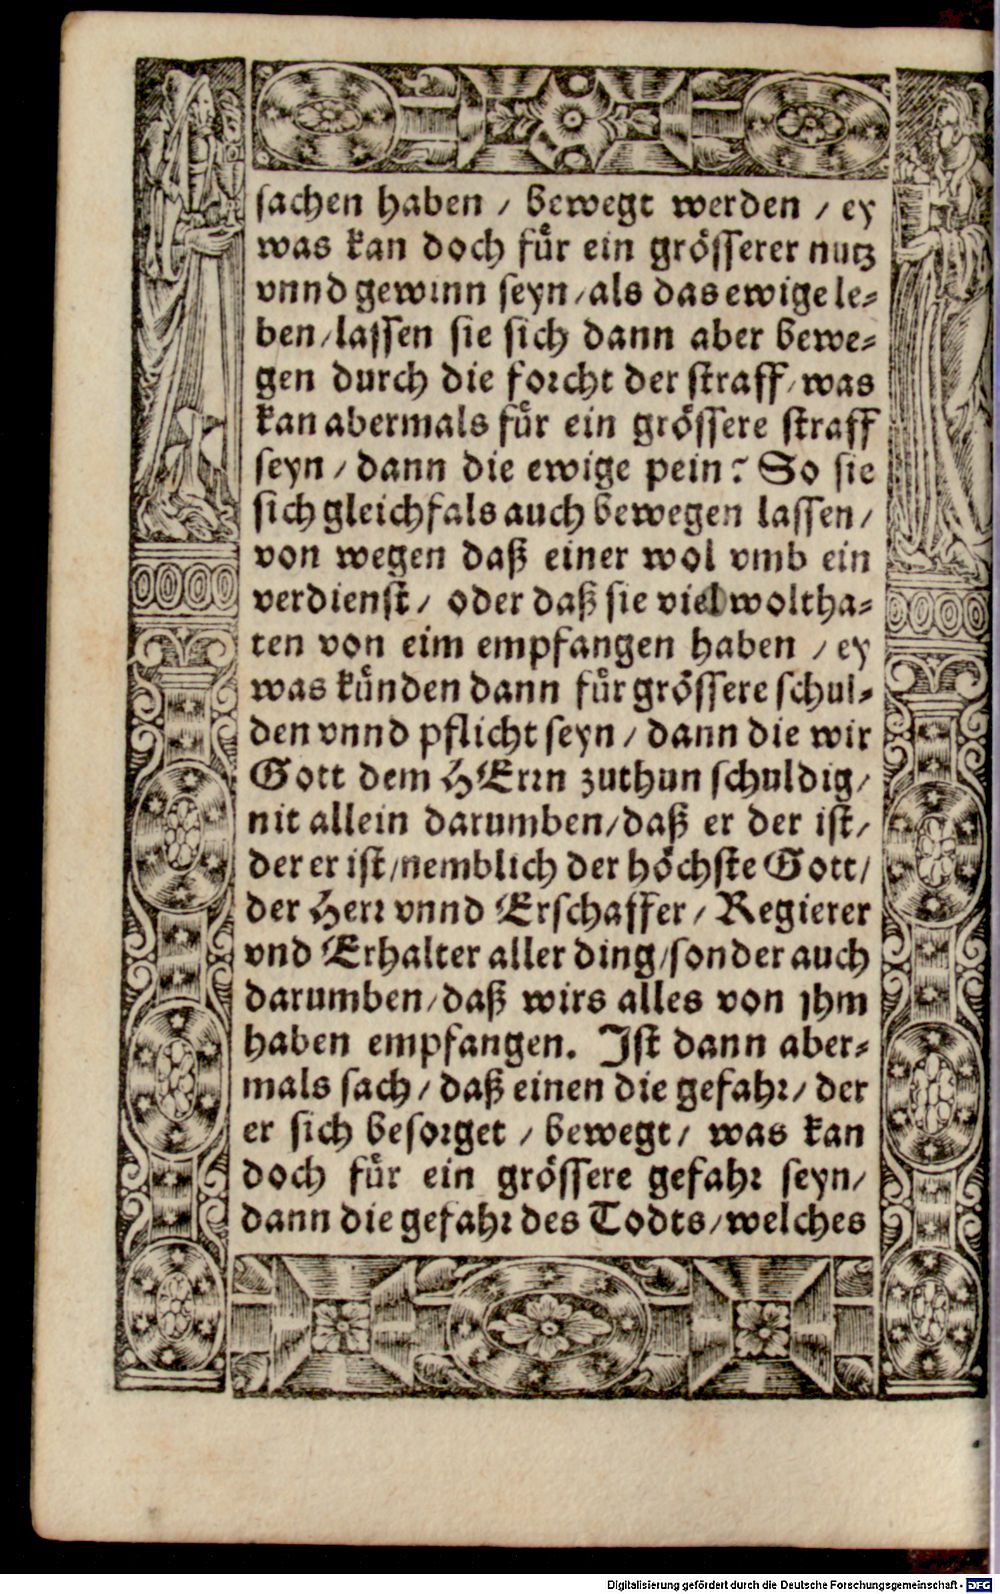 sachen haben / bewegt werden / ey
was kan doch fuͤr ein groͤsserer nutz
vnnd gewinn seyn / als das ewige le⸗
ben / lassen sie sich dann aber bewe⸗
gen durch die forcht der straff / was
kan abermals fuͤr ein groͤssere straff
seyn / dann die ewige pein? So sie
sich gleichfals auch bewegen lassen /
von wegen daß einer wol vmb ein
verdienst / oder daß sie viel woltha⸗
ten von eim empfangen haben / ey
was kuͤnden dann fuͤr groͤssere schul⸗
den vnnd pflicht seyn / dann die wir
Gott dem HErrn zuthun schuldig /
nit allein darumben / daß er der ist /
der er ist / nemblich der hoͤchste Gott /
der Herr vnnd Erschaffer / Regierer
vnd Erhalter aller ding / sonder auch
darumben / daß wirs alles von jhm
haben empfangen. Ist dann aber⸗
mals sach / daß einen die gefahr / der
er sich besorget / bewegt / was kan
doch fuͤr ein groͤssere gefahr seyn /
dann die gefahr des Todts / welches
Digitalisierung gefördert durch die Deutsche Forschungsgemeinschaft - DFG